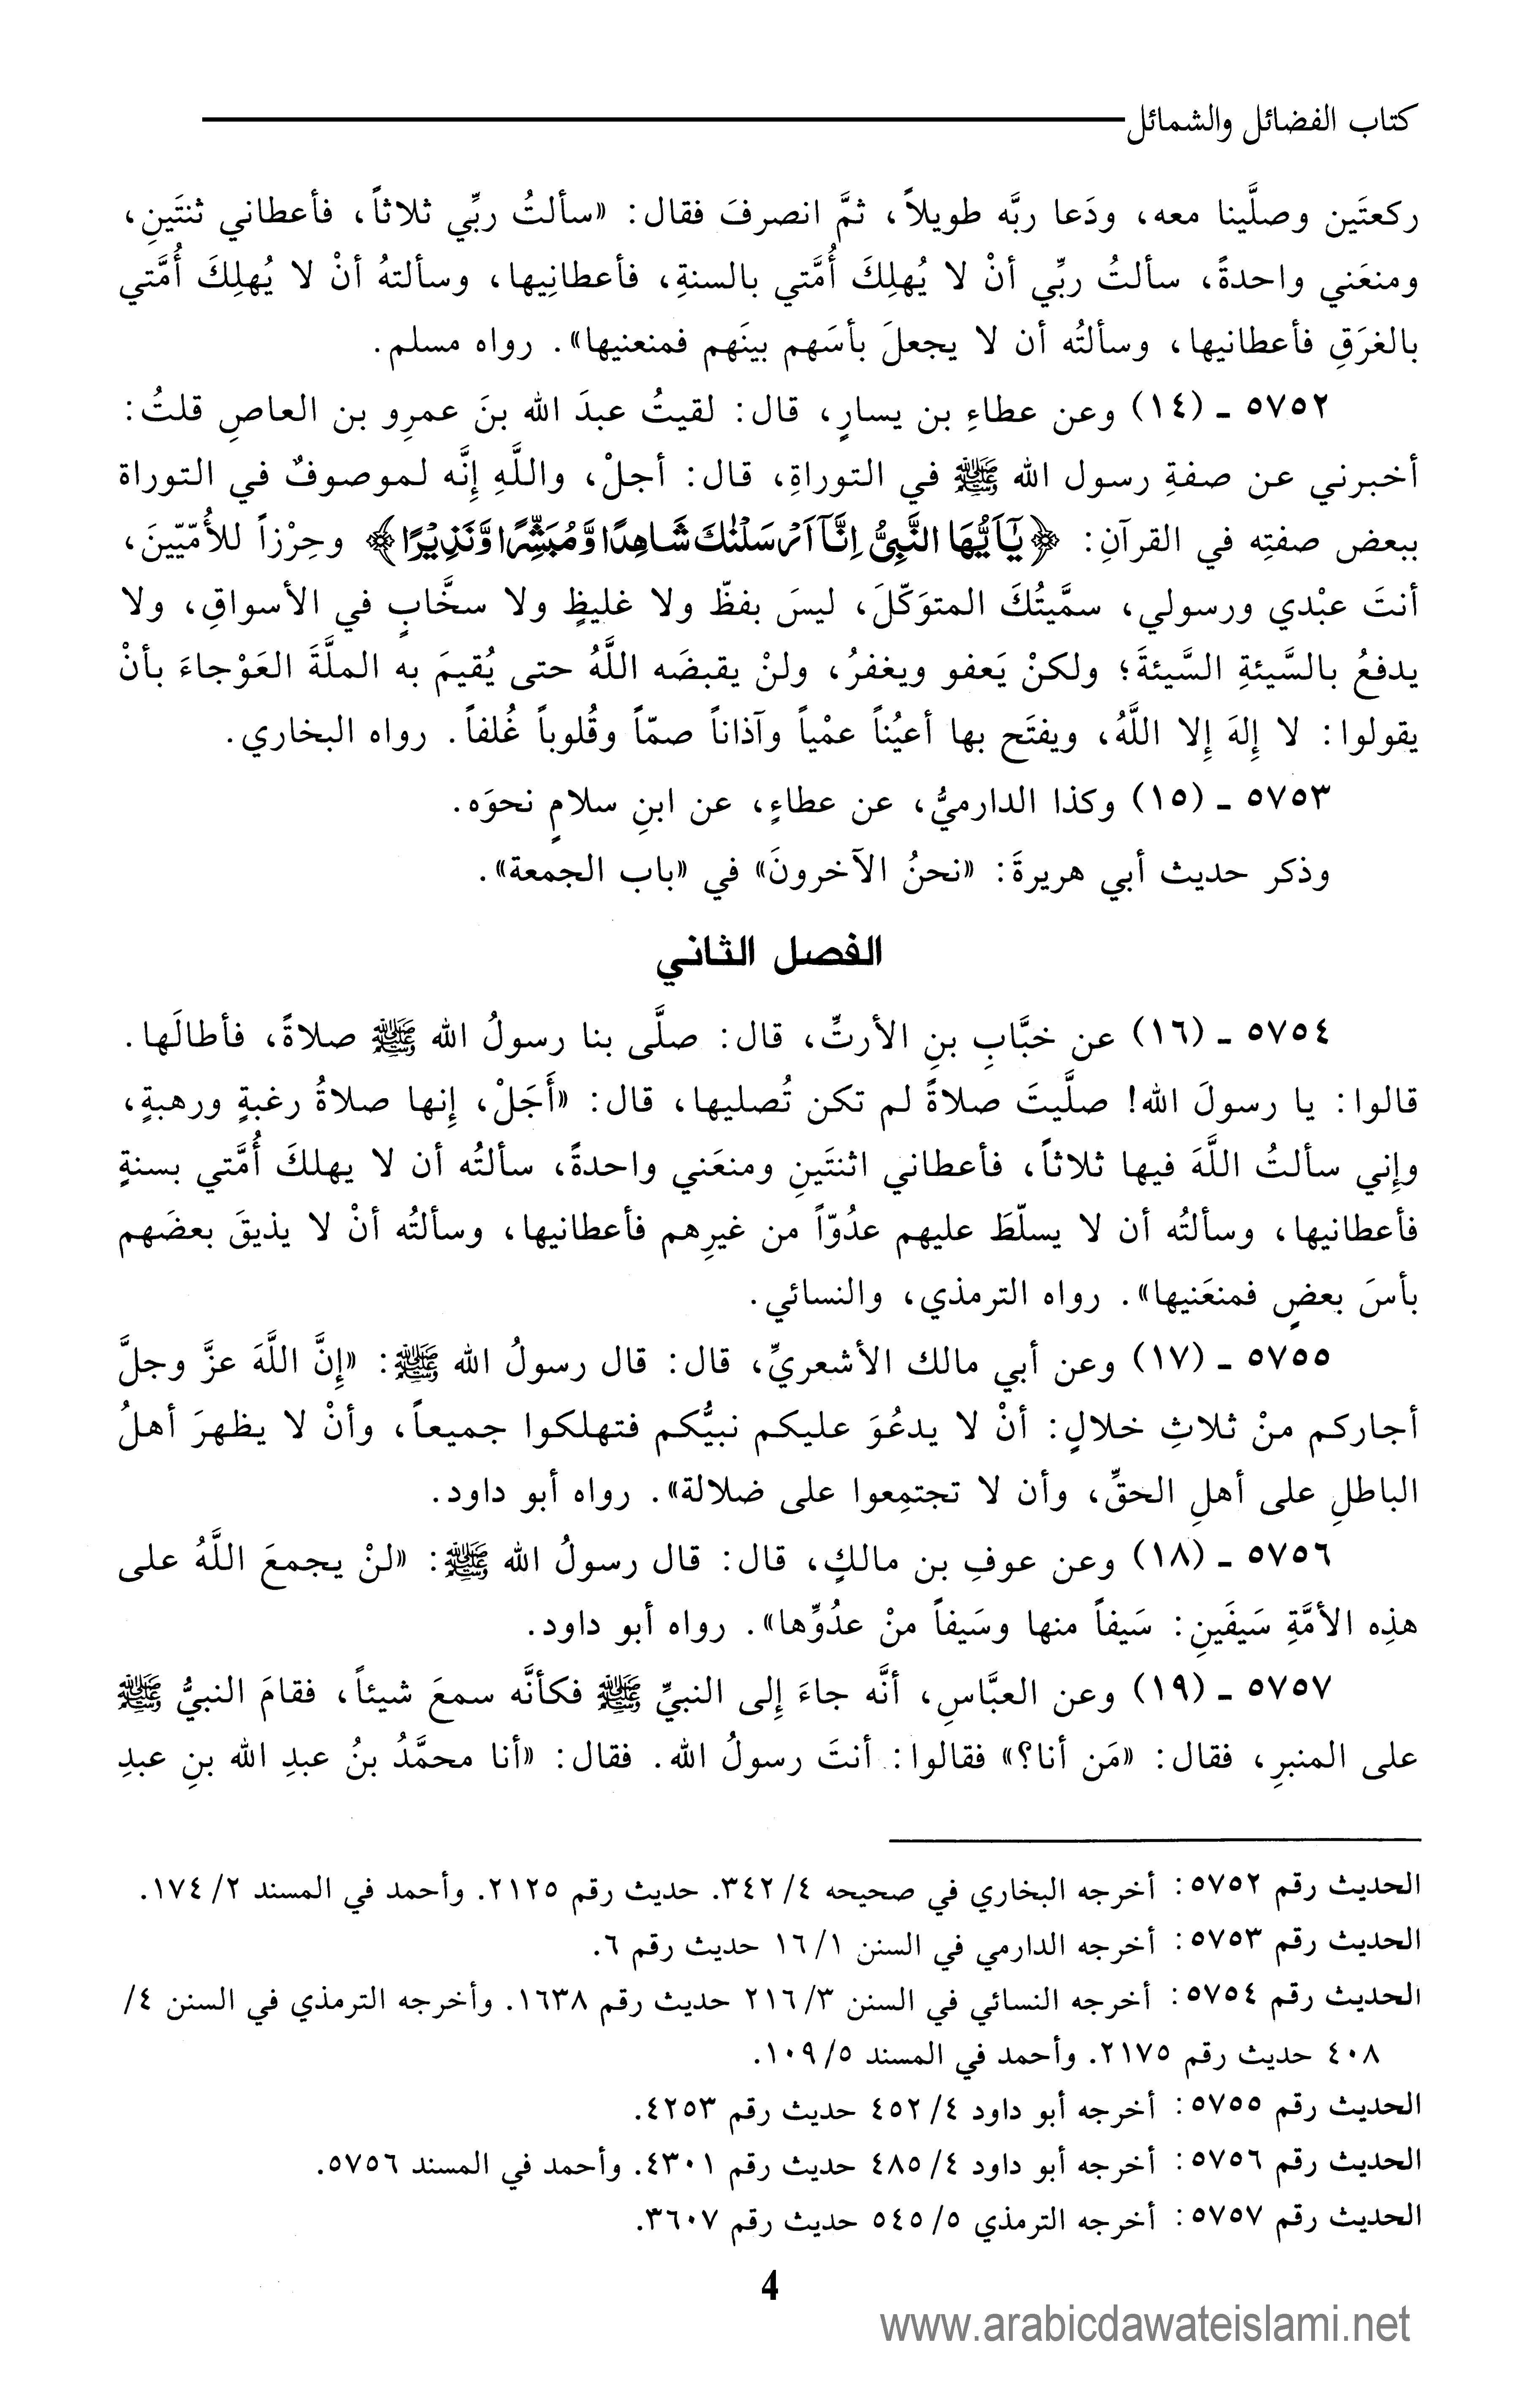 كتاب الفضائل والشمائل
ركعتَين وصلَّينا معه، ودَعا ربَّه طويلاً، ثمَّ انصرفَ فقال: «سألتُ ربِّي ثلاثاً، فأعطاني ثنتَينِ،
ومنعَني واحدةً، سألتُ ربِّي أنْ لا يُهلِكَ أُمَّتي بالسنةِ، فأعطانِيها، وسألتهُ أنْ لا يُهلِكَ أُمَّتي
بالغرَقِ فأعطانيها، وسألتُه أن لا يجعلَ بأسَهم بينَهم فمنعنيها». رواه مسلم.
٥٧٥٢ - (١٤) وعن عطاءِ بن يسارٍ، قال: لقيتُ عبدَ الله بنَ عمرِو بن العاصِ قلتُ:
أخبرني عن صفةِ رسول الله ﷺ في التوراةِ، قال: أجلْ، واللَّهِ إِنَّه لموصوفٌ في التوراة
ببعض صفتِه في القرآنِ: ﴿يٰٓاَيُّهَا النَّبِىُّ اِنَّآ اَرۡسَلۡنٰكَ شَاهِدًا وَّمُبَشِّرًا وَّنَذِيۡرًا﴾ وحِرْزاً للأُمّيّينَ،
أنتَ عبْدي ورسولي، سمَّيتُكَ المتوَكّلَ، ليسَ بفظّ ولا غليظٍ ولا سخَّابٍ في الأسواقِ، ولا
يدفعُ بالسَّيئةِ السَّيئةَ؛ ولكنْ يَعفو ويغفرُ، ولنْ يقبضَه اللَّهُ حتى يُقيمَ به الملَّةَ العَوْجاءَ بأنْ
يقولوا: لا إِلهَ إِلا اللَّهُ، ويفتَح بها أعيُناً عمْياً وآذاناً صمّاً وقُلوباً غُلفاً. رواه البخاري.
٥٧٥٣ - (١٥) وكذا الدارميُّ، عن عطاءٍ، عن ابنِ سلامٍ نحوَه.
وذكر حديث أبي هريرةَ: «نحنُ الآخرونَ» في «باب الجمعة».
الفصل الثاني
٥٧٥٤ - (١٦) عن خبَّابِ بنِ الأرتِّ، قال: صلَّى بنا رسولُ الله ﷺ صلاةً، فأطالَها.
قالوا: يا رسولَ الله! صلَّيتَ صلاةً لم تكن تُصليها، قال: «أَجَلْ، إِنها صلاةُ رغبةٍ ورهبةٍ،
وإِني سألتُ اللَّهَ فيها ثلاثاً، فأعطاني اثنتَينِ ومنعَني واحدةً، سألتُه أن لا يهلكَ أُمَّتي بسنةٍ
فأعطانيها، وسألتُه أن لا يسلّطَ عليهم عدُوّاً من غيرِهم فأعطانيها، وسألتُه أنْ لا يذيقَ بعضَهم
بأسَ بعضٍ فمنعَنيها». رواه الترمذي، والنسائي.
٥٧٥٥ - (١٧) وعن أبي مالك الأشعريِّ، قال: قال رسولُ الله ﷺ: «إِنَّ اللَّهَ عزَّ وجلَّ
أجاركم منْ ثلاثِ خلالٍ: أنْ لا يدعُوَ عليكم نبيُّكم فتهلكوا جميعاً، وأنْ لا يظهرَ أهلُ
الباطلِ على أهلِ الحقِّ، وأن لا تجتمِعوا على ضلالة». رواه أبو داود.
٥٧٥٦ - (١٨) وعن عوفِ بن مالكٍ، قال: قال رسولُ الله ﷺ: «لنْ يجمعَ اللَّهُ على
هذِه الأمَّةِ سَيفَينِ: سَيفاً منها وسَيفاً منْ عدُوِّها». رواه أبو داود.
٥٧٥٧ - (١٩) وعن العبَّاسِ، أنَّه جاءَ إِلى النبيِّ ﷺ فكأنَّه سمعَ شيئاً، فقامَ النبيُّ ﷺ
على المنبرِ، فقال: «مَن أنا؟» فقالوا: أنتَ رسولُ الله. فقال: «أنا محمَّدُ بنُ عبدِ الله بنِ عبدِ
الحديث رقم ٥٧٥٢: أخرجه البخاري في صحيحه ٤/ ٣٤٢. حديث رقم ٢١٢٥. وأحمد في المسند ٢/ ١٧٤.
الحديث رقم ٥٧٥٣: أخرجه الدارمي في السنن ١/ ١٦ حديث رقم ٦.
الحديث رقم ٥٧٥٤: أخرجه النسائي في السنن ٣/ ٢١٦ حديث رقم ١٦٣٨. وأخرجه الترمذي في السنن ٤/
٤٠٨ حديث رقم ٢١٧٥. وأحمد في المسند ٥/ ١٠٩.
الحديث رقم ٥٧٥٥: أخرجه أبو داود ٤/ ٤٥٢ حديث رقم ٤٢٥٣.
الحديث رقم ٥٧٥٦: أخرجه أبو داود ٤/ ٤٨٥ حديث رقم ٤٣٠١. وأحمد في المسند ٥٧٥٦.
الحديث رقم ٥٧٥٧: أخرجه الترمذي ٥/ ٥٤٥ حديث رقم ٣٦٠٧.
4
www.arabicdawateislami.net